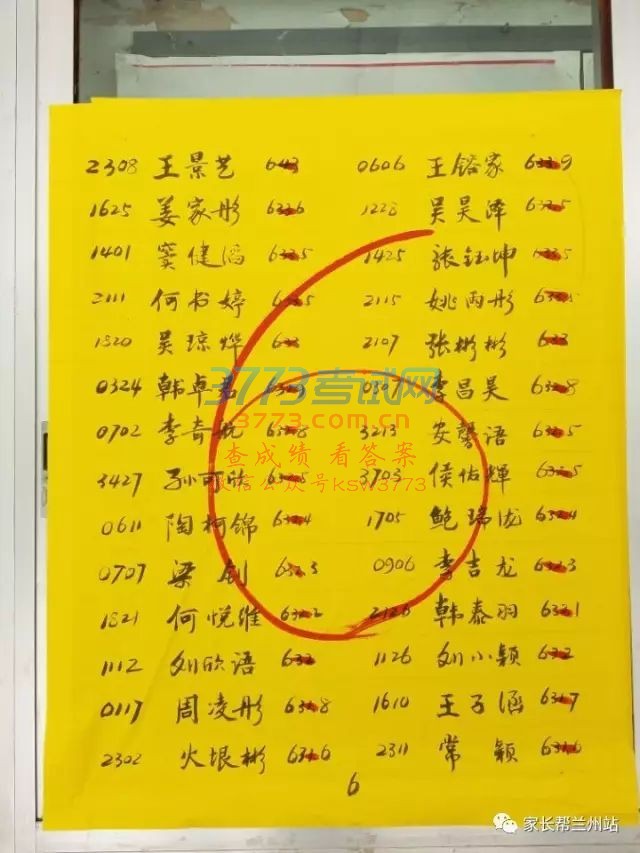 2308 王景艺 643 0606 王镕家 633.9
1625 姜家彤 633.6 1228 吴昊泽 633.5
1401 窦健滔 633.5 1425 张钰坤 633.5
2111 何书婷 633.5 2115 姚雨彤 633.5
1820 吴琼烨 633 2107 张彬彬 633
0324 韩卓 李昌昊 632.8
0702 李奇航 632.8 3213 安馨语 632.5
3427 孙可欣 632.5 3703 侯佑辉 632.5
0611 陶柯锦 632.4 1705 鲍瑞泷 632.4
0707 梁钊 632.3 0906 李吉龙 632.3
1821 何悦维 632.2 2126 韩泰羽 632.1
1112 刘欣语 632 1126 刘小颖 632
0117 周凌彤 631.8 1610 王子涵 631.7
2302 火垠彬 631.6 2311 常颖 631.6
6
3773考试网
3773.com.cn
查成绩 看答案
微信公众号ksw3773
家长帮兰州站